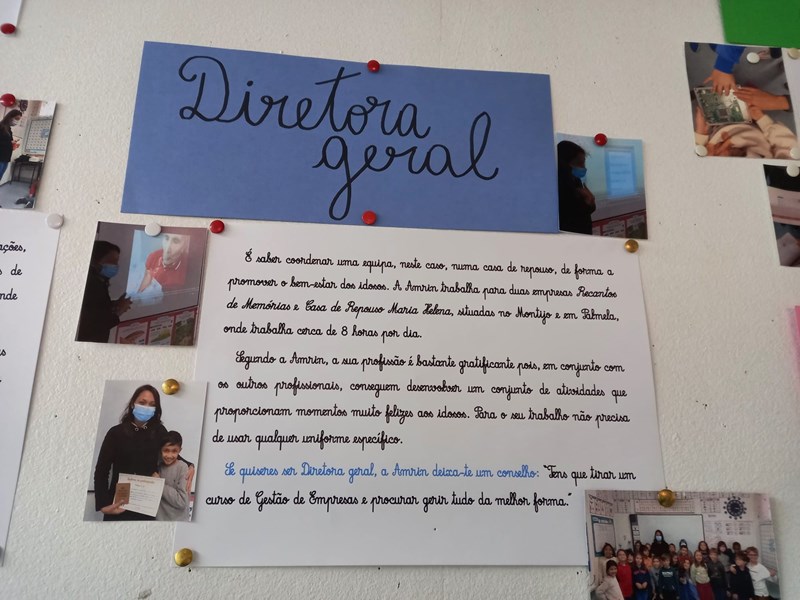 Diretora
geral
É saber coordenar uma equipa, neste caso, numa casa de repouso, de forma a
promover o bem-estar dos idosos. A Amrin trabalha para duas empresas Recantos
de Memórias e Casa de Repouso Maria Helena, situadas no Montijo e em Palmela,
onde trabalha cerca de 8 horas por dia.
Segundo a Amrin, a sua profissão é bastante gratificante pois, em conjunto com
os outros profissionais, conseguem desenvolver um conjunto de atividades que
proporcionam momentos muito felizes aos idosos. Para o seu trabalho não precisa
de usar qualquer uniforme específico.
Se quiseres ser Diretora geral, a Amrin deixa-te um conselho: "Tens que tirar um
curso de Gestão de Empresas e procurar gerir tudo da melhor forma."
ações,
s de
nde
s